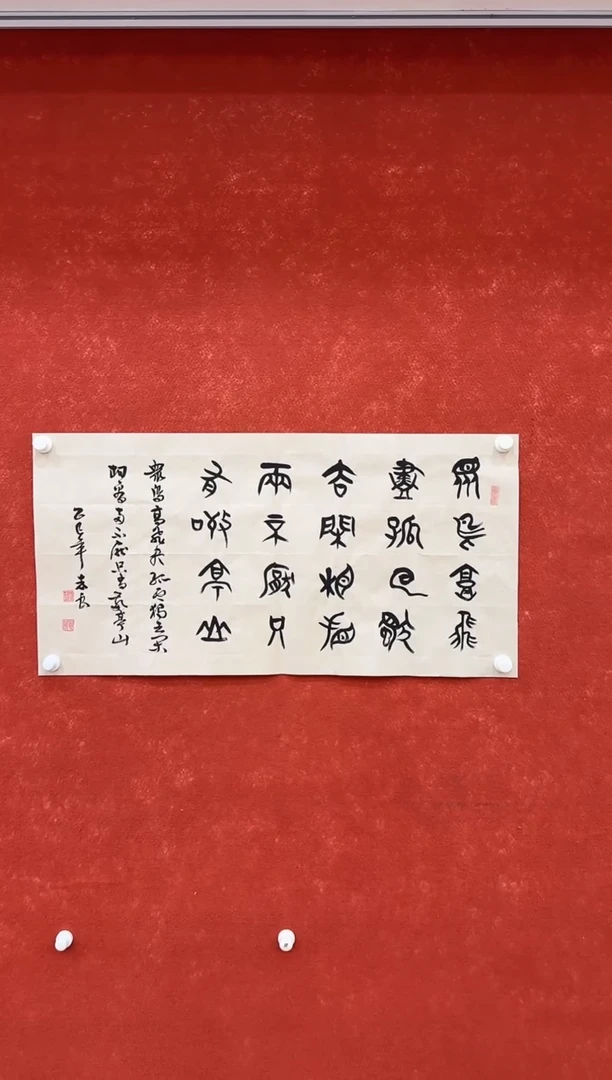 眾鳥高飛
盡孤雲獨
去閒相看
兩不厭只
有敬亭山
眾鳥高飛尽孤云獨去闲
相看两不厭只有敬亭山
乙巳年